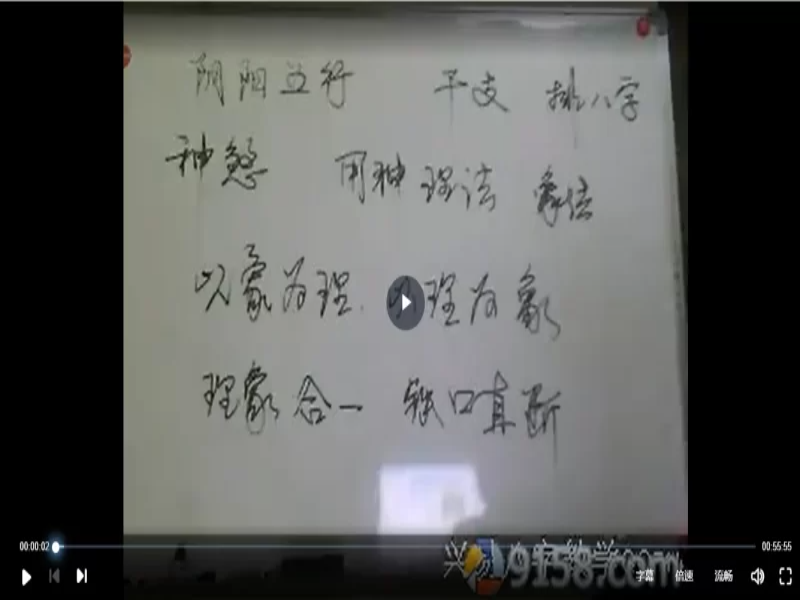 阴阳五行 干支 排八字
神煞 用神 理法 象法
以象为理. 以理为象
理象合一 铁口直断
9158.com
00:00:02
00:55:55
字幕 倍速 流畅